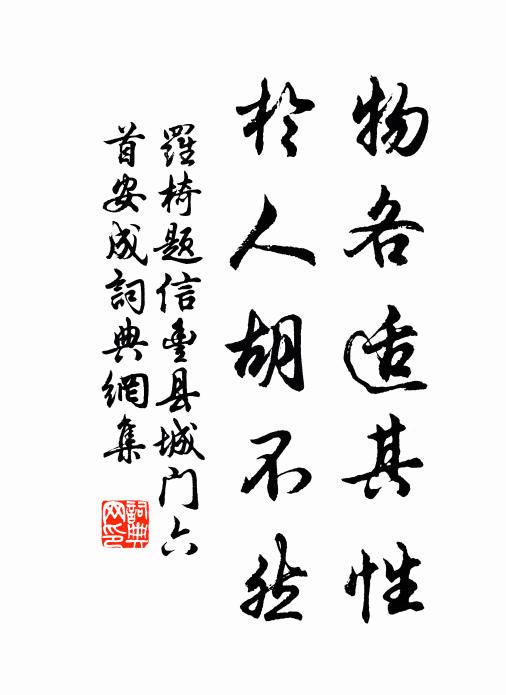 物各适其性
於人胡不然
羅椅题信豊县城门六
首安成詞典網集
詞典
网印